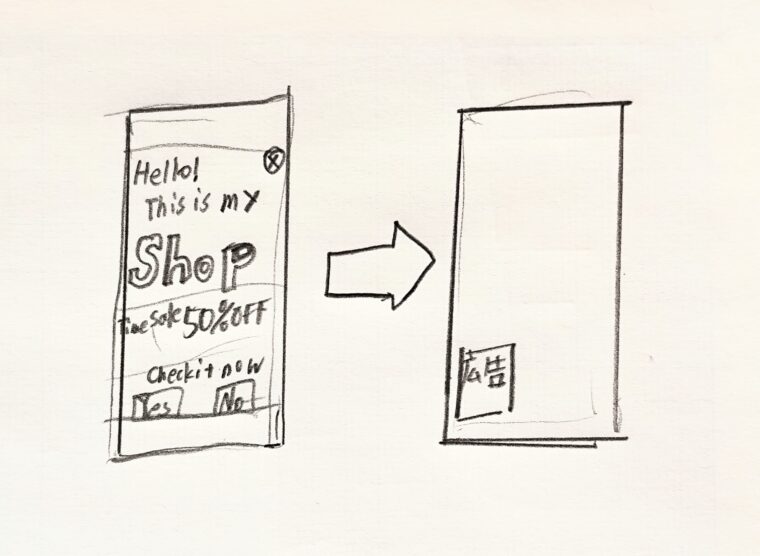 Hello!
This is my
Shop
Time Sale 50%OFF
Check it now
Yes No
広告